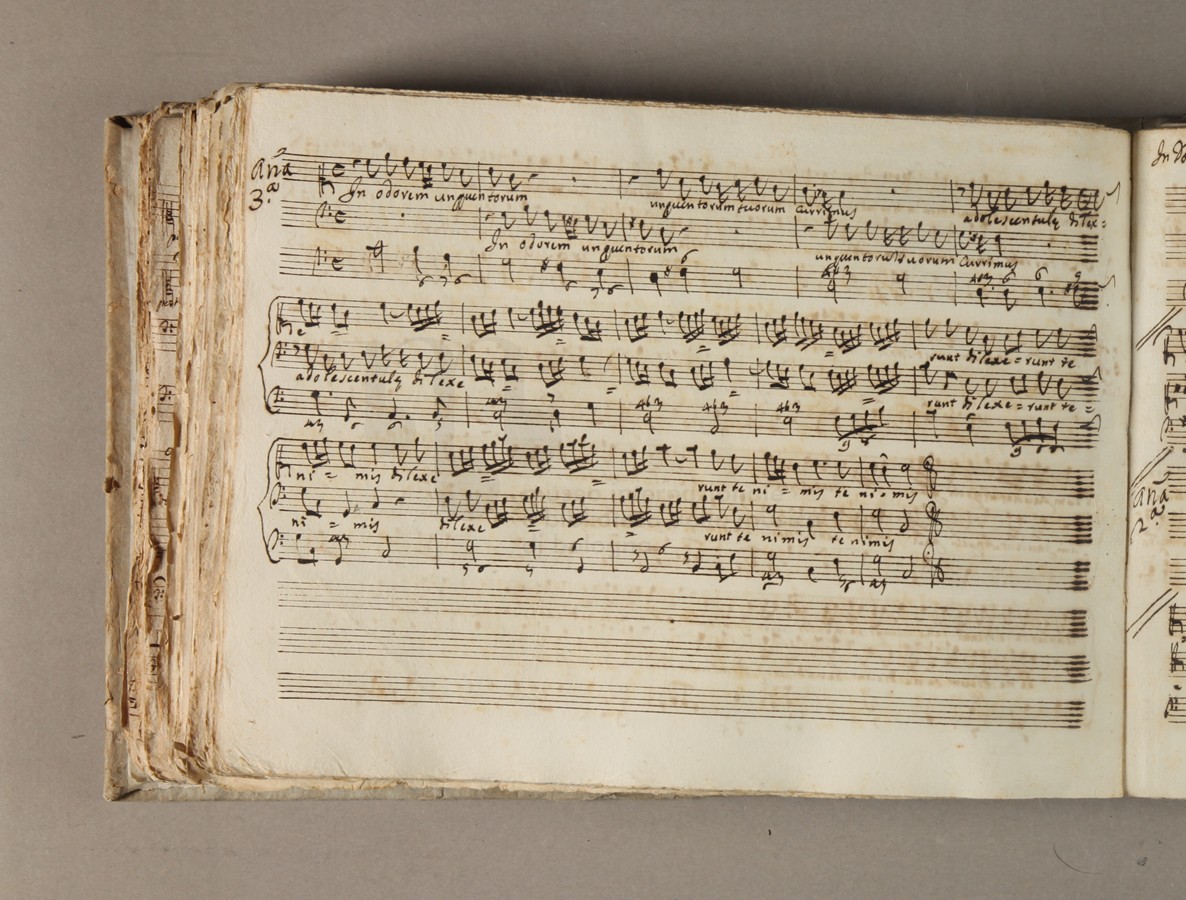 Ana
3.a
In odorem unguentorum unguentorum tuorum Currimus adolescentulę dilex=
In odorem unguentorum unguentorum tuorum Currimus
runt dilexe=runt te
adolescentulę dilexe runt dilexe=runt te
ni = mis dilexe runt te ni = mis te ni=mis
ni = mis dilexe runt te nimis te nimis
In
Ana
2.a